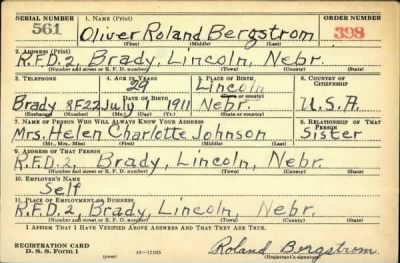 SERIAL NUMBER 1. NAME (Print) ORDER NUMBER
561 Oliver Roland Bergstrom 398
(First) (Middle) (Last)
2. ADDRESS (Print)
R.F.D. 2, Brady, Lincoln, Nebr.
(Number and street or R. F. D. number) (Town) (County) (State)
3. TELEPHONE 4. AGE IN YEARS 5. PLACE OF BIRTH 6. COUNTRY OF CITIZENSHIP
29 Lincoln
DATE OF BIRTH (Town or county)
Brady 8F22 July 1 1911 Nebr. U.S.A.
(Exchange) (Number) (Mo.) (Day) (Yr.) (State or country)
7. NAME OF PERSON WHO WILL ALWAYS KNOW YOUR ADDRESS 8. RELATIONSHIP OF THAT PERSON
Mrs. Helen Charlotte Johnson Sister
(Mr., Mrs., Miss) (First) (Middle) (Last)
9. ADDRESS OF THAT PERSON
R.F.D. 2, Brady, Lincoln, Nebr.
(Number and street or R. F. D. number) (Town) (County) (State)
10. EMPLOYER'S NAME
Self
11. PLACE OF EMPLOYMENT OR BUSINESS
R.F.D. 2, Brady, Lincoln, Nebr.
(Number and street or R. F. D. number) (Town) (County) (State)
I AFFIRM THAT I HAVE VERIFIED ABOVE ANSWERS AND THAT THEY ARE TRUE.
REGISTRATION CARD
D. S. S. Form 1 (over) 16—17105 Roland Bergstrom
(Registrant's signature)